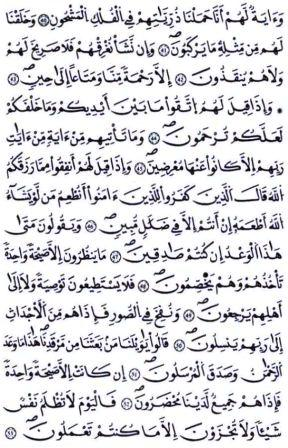 وَءَايَةٌ لَّهُمْ أَنَّا حَمَلْنَا ذُرِّيَّاتِهِمْ فِي الْفُلْكِ الْمَشْحُونِ وَخَلَقْنَا
لَهُم مِّن مِّثْلِهِ مَا يَرْكَبُونَ وَإِن نَّشَأْ نُغْرِقْهُمْ فَلَا صَرِيخَ لَهُمْ
وَلَا هُمْ يُنقَذُونَ إِلَّا رَحْمَةً مِّنَّا وَمَتَاعًا إِلَىٰ حِينٍ
وَإِذَا قِيلَ لَهُمُ اتَّقُوا مَا بَيْنَ أَيْدِيكُمْ وَمَا خَلْفَكُمْ
لَعَلَّكُمْ تُرْحَمُونَ وَمَا تَأْتِيهِم مِّنْ ءَايَةٍ مِّنْ ءَايَاتِ
رَبِّهِمْ إِلَّا كَانُوا عَنْهَا مُعْرِضِينَ وَإِذَا قِيلَ لَهُمْ أَنفِقُوا مِمَّا رَزَقَكُمُ
اللَّهُ قَالَ الَّذِينَ كَفَرُوا لِلَّذِينَ ءَامَنُوا أَنُطْعِمُ مَن لَّوْ يَشَاءُ
اللَّهُ أَطْعَمَهُ إِنْ أَنتُمْ إِلَّا فِي ضَلَٰلٍ مُّبِينٍ وَيَقُولُونَ مَتَىٰ
هَٰذَا الْوَعْدُ إِن كُنتُمْ صَادِقِينَ مَا يَنظُرُونَ إِلَّا صَيْحَةً وَاحِدَةً
تَأْخُذُهُمْ وَهُمْ يَخِصِّمُونَ فَلَا يَسْتَطِيعُونَ تَوْصِيَةً وَلَا إِلَىٰ
أَهْلِهِمْ يَرْجِعُونَ وَنُفِخَ فِي الصُّورِ فَإِذَا هُم مِّنَ الْأَجْدَاثِ
إِلَىٰ رَبِّهِمْ يَنسِلُونَ قَالُوا يَٰوَيْلَنَا مَن بَعَثَنَا مِن مَّرْقَدِنَا هَٰذَا مَا وَعَدَ
الرَّحْمَٰنُ وَصَدَقَ الْمُرْسَلُونَ إِن كَانَتْ إِلَّا صَيْحَةً وَاحِدَةً
فَإِذَا هُمْ جَمِيعٌ لَّدَيْنَا مُحْضَرُونَ فَالْيَوْمَ لَا تُظْلَمُ نَفْسٌ
شَيْئًا وَلَا تُجْزَوْنَ إِلَّا مَا كُنتُمْ تَعْمَلُونَ